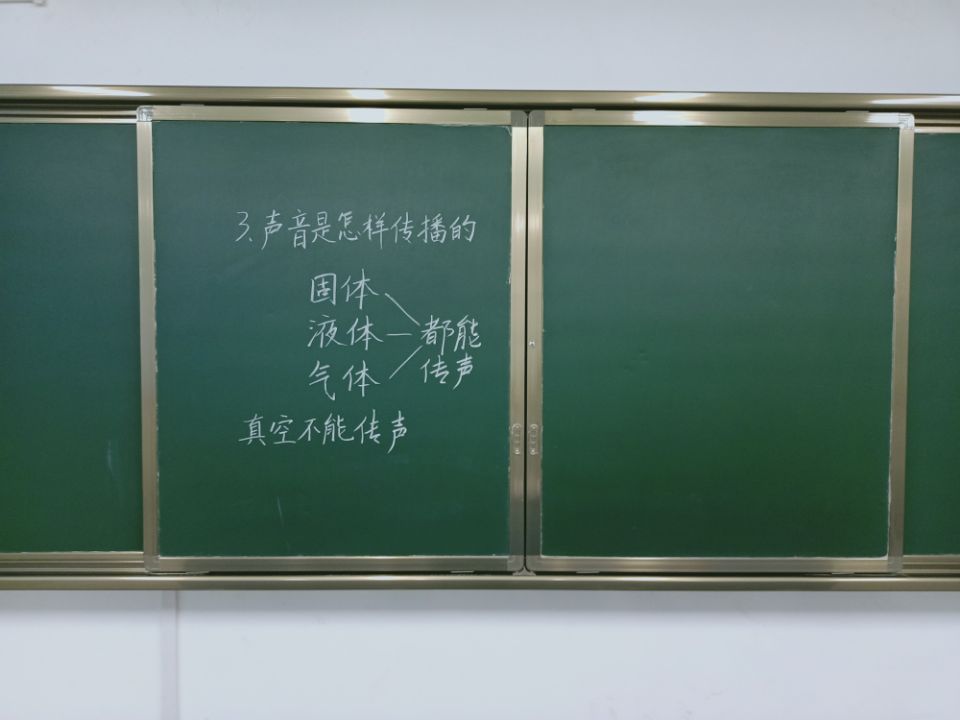 3.声音是怎样传播的
固体
液体
气体
都能
传声
真空不能传声